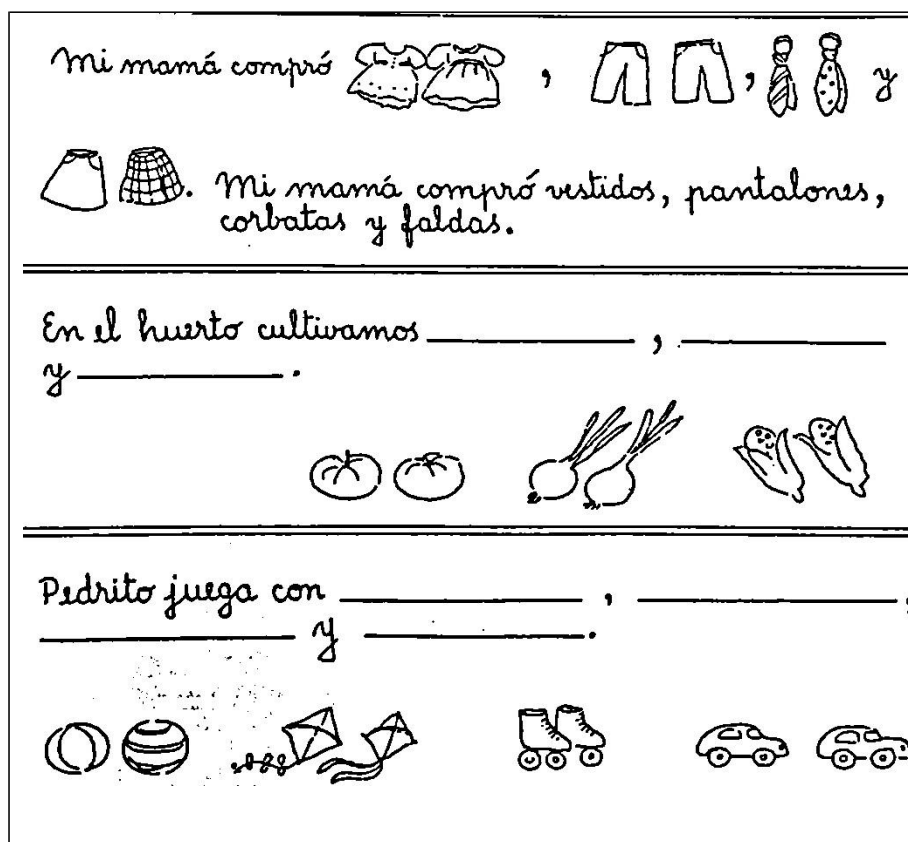 Mi mamá compró , , y
. Mi mamá compró vestidos, pantalones,
corbatas y faldas.
En el huerto cultivamos ____________ , ____________
y ____________ .
Pedrito juega con ____________ , ____________ ,
____________ y ____________ .